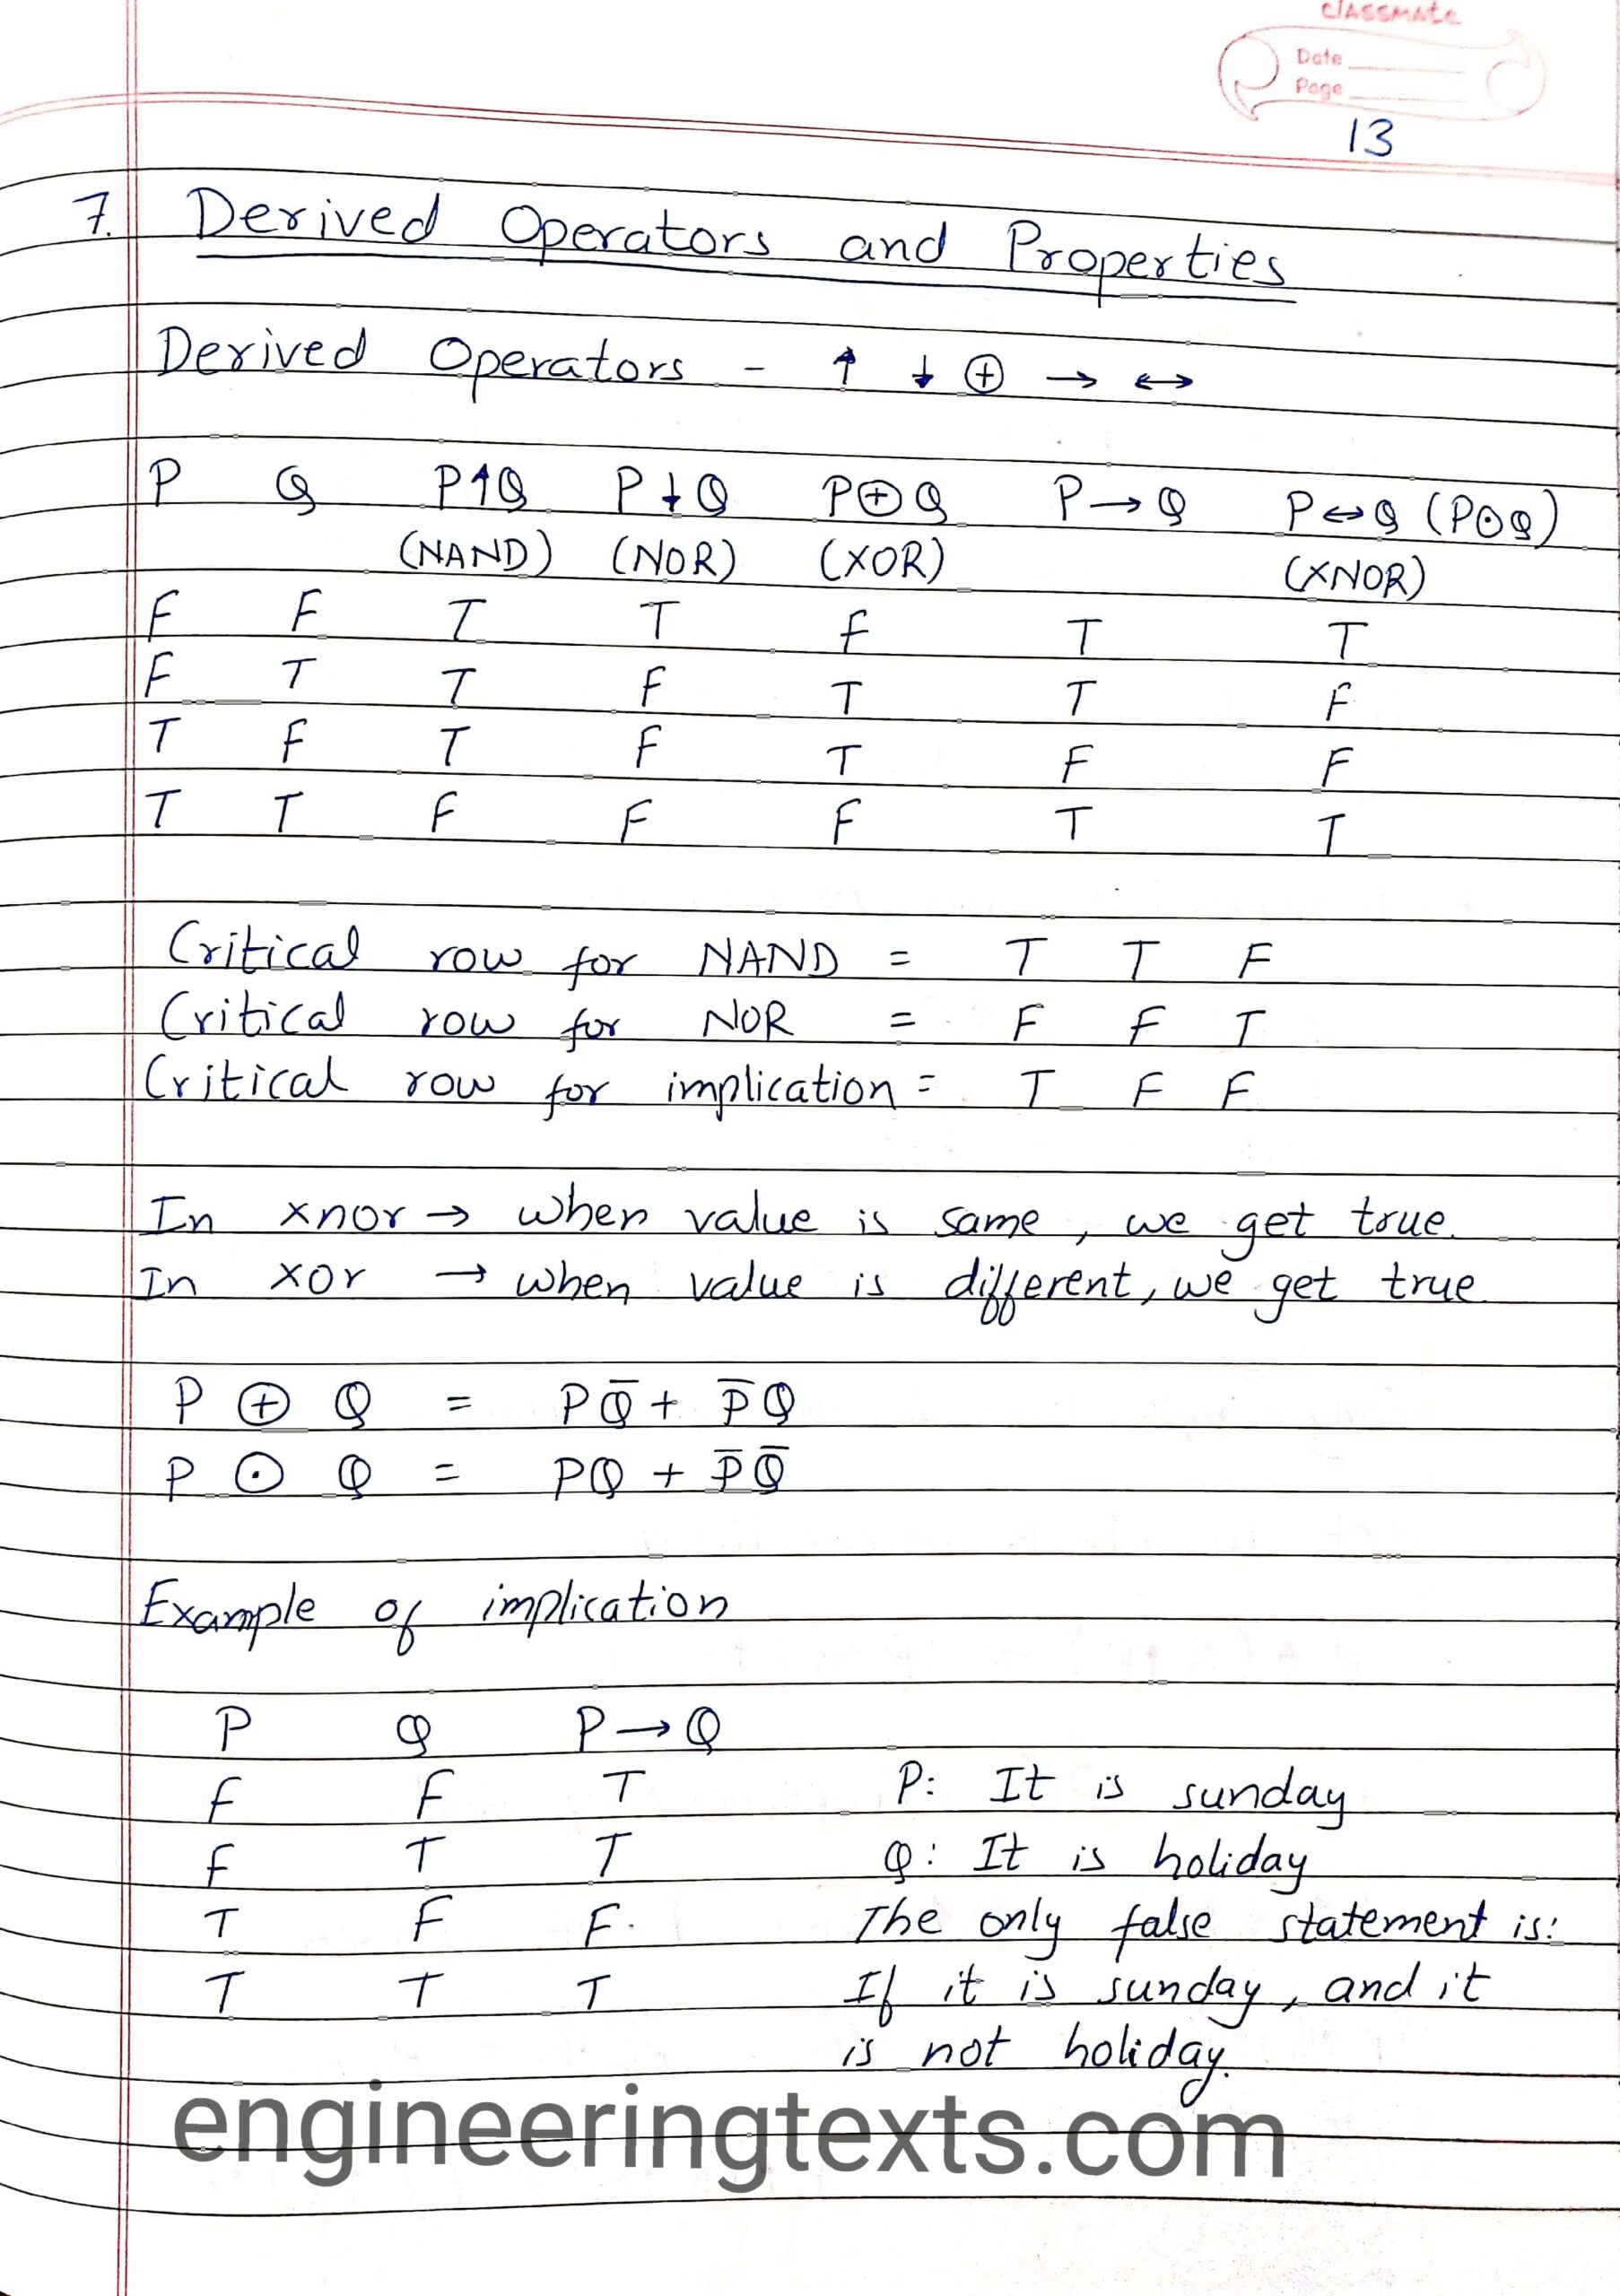 classmate
Date
Page
13
7. Derived Operators and Properties
Derived Operators - ↑ ↓ ⊕ → ↔
P Q P↑Q P↓Q P⊕Q P→Q P↔Q (P⊙Q)
(NAND) (NOR) (XOR) (XNOR)
F F T T F T T
F T T F T T F
T F T F T F F
T T F F F T T
Critical row for NAND = T T F
Critical row for NOR = F F T
Critical row for implication = T F F
In xnor → when value is same, we get true.
In xor → when value is different, we get true
P ⊕ Q = PQ̅ + P̅Q
P ⊙ Q = PQ + P̅Q̅
Example of implication
P Q P→Q
F F T P: It is sunday
F T T Q: It is holiday
T F F. The only false statement is:
T T T If it is sunday, and it
is not holiday.
engineeringtexts.com